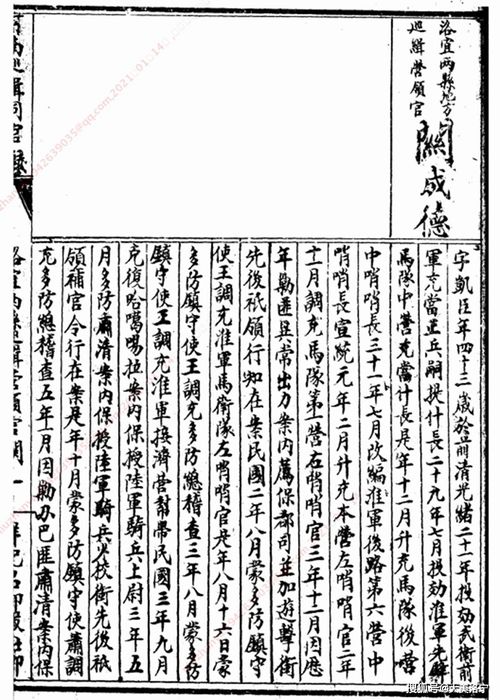 洛宜两縣地方
巡緝營領官
關成德
字凱臣年四十三歲於前清光緒二十一年投効武衛前
軍充當正兵嗣提什長二十九年七月投効淮軍先鋒
馬隊中營充當什長是年十二月升充馬隊後營
中哨哨長三十一年七月改編淮軍後路第六營中
哨哨長宣統元年二月升充本營左哨哨官二年
十二月調充馬隊第一營右哨哨官三年十二月因歷
年勦匪異常出力案内薦保都司並加遊擊銜
先後祇領行知在案民國二年八月蒙多防鎮守
使王調充淮軍馬衛隊左哨哨官是年八月十六日蒙
多防鎮守使王調充多防總稽查三年八月蒙多防
鎮守使王調充淮軍接濟營幫帶民國三年九月
克復哈噶喝拉案内保授陸軍騎兵上尉三年五
月多防肅清案内保授陸軍騎兵少校銜先後祇
領補官令行在案是年十月蒙多防鎮守使蕭調
充多防總稽查五年十月因勦办巴匪肅清案内保
洛宜兩縣巡緝營領官關 一
巡緝同官錄
搜狐号@大美洛宁